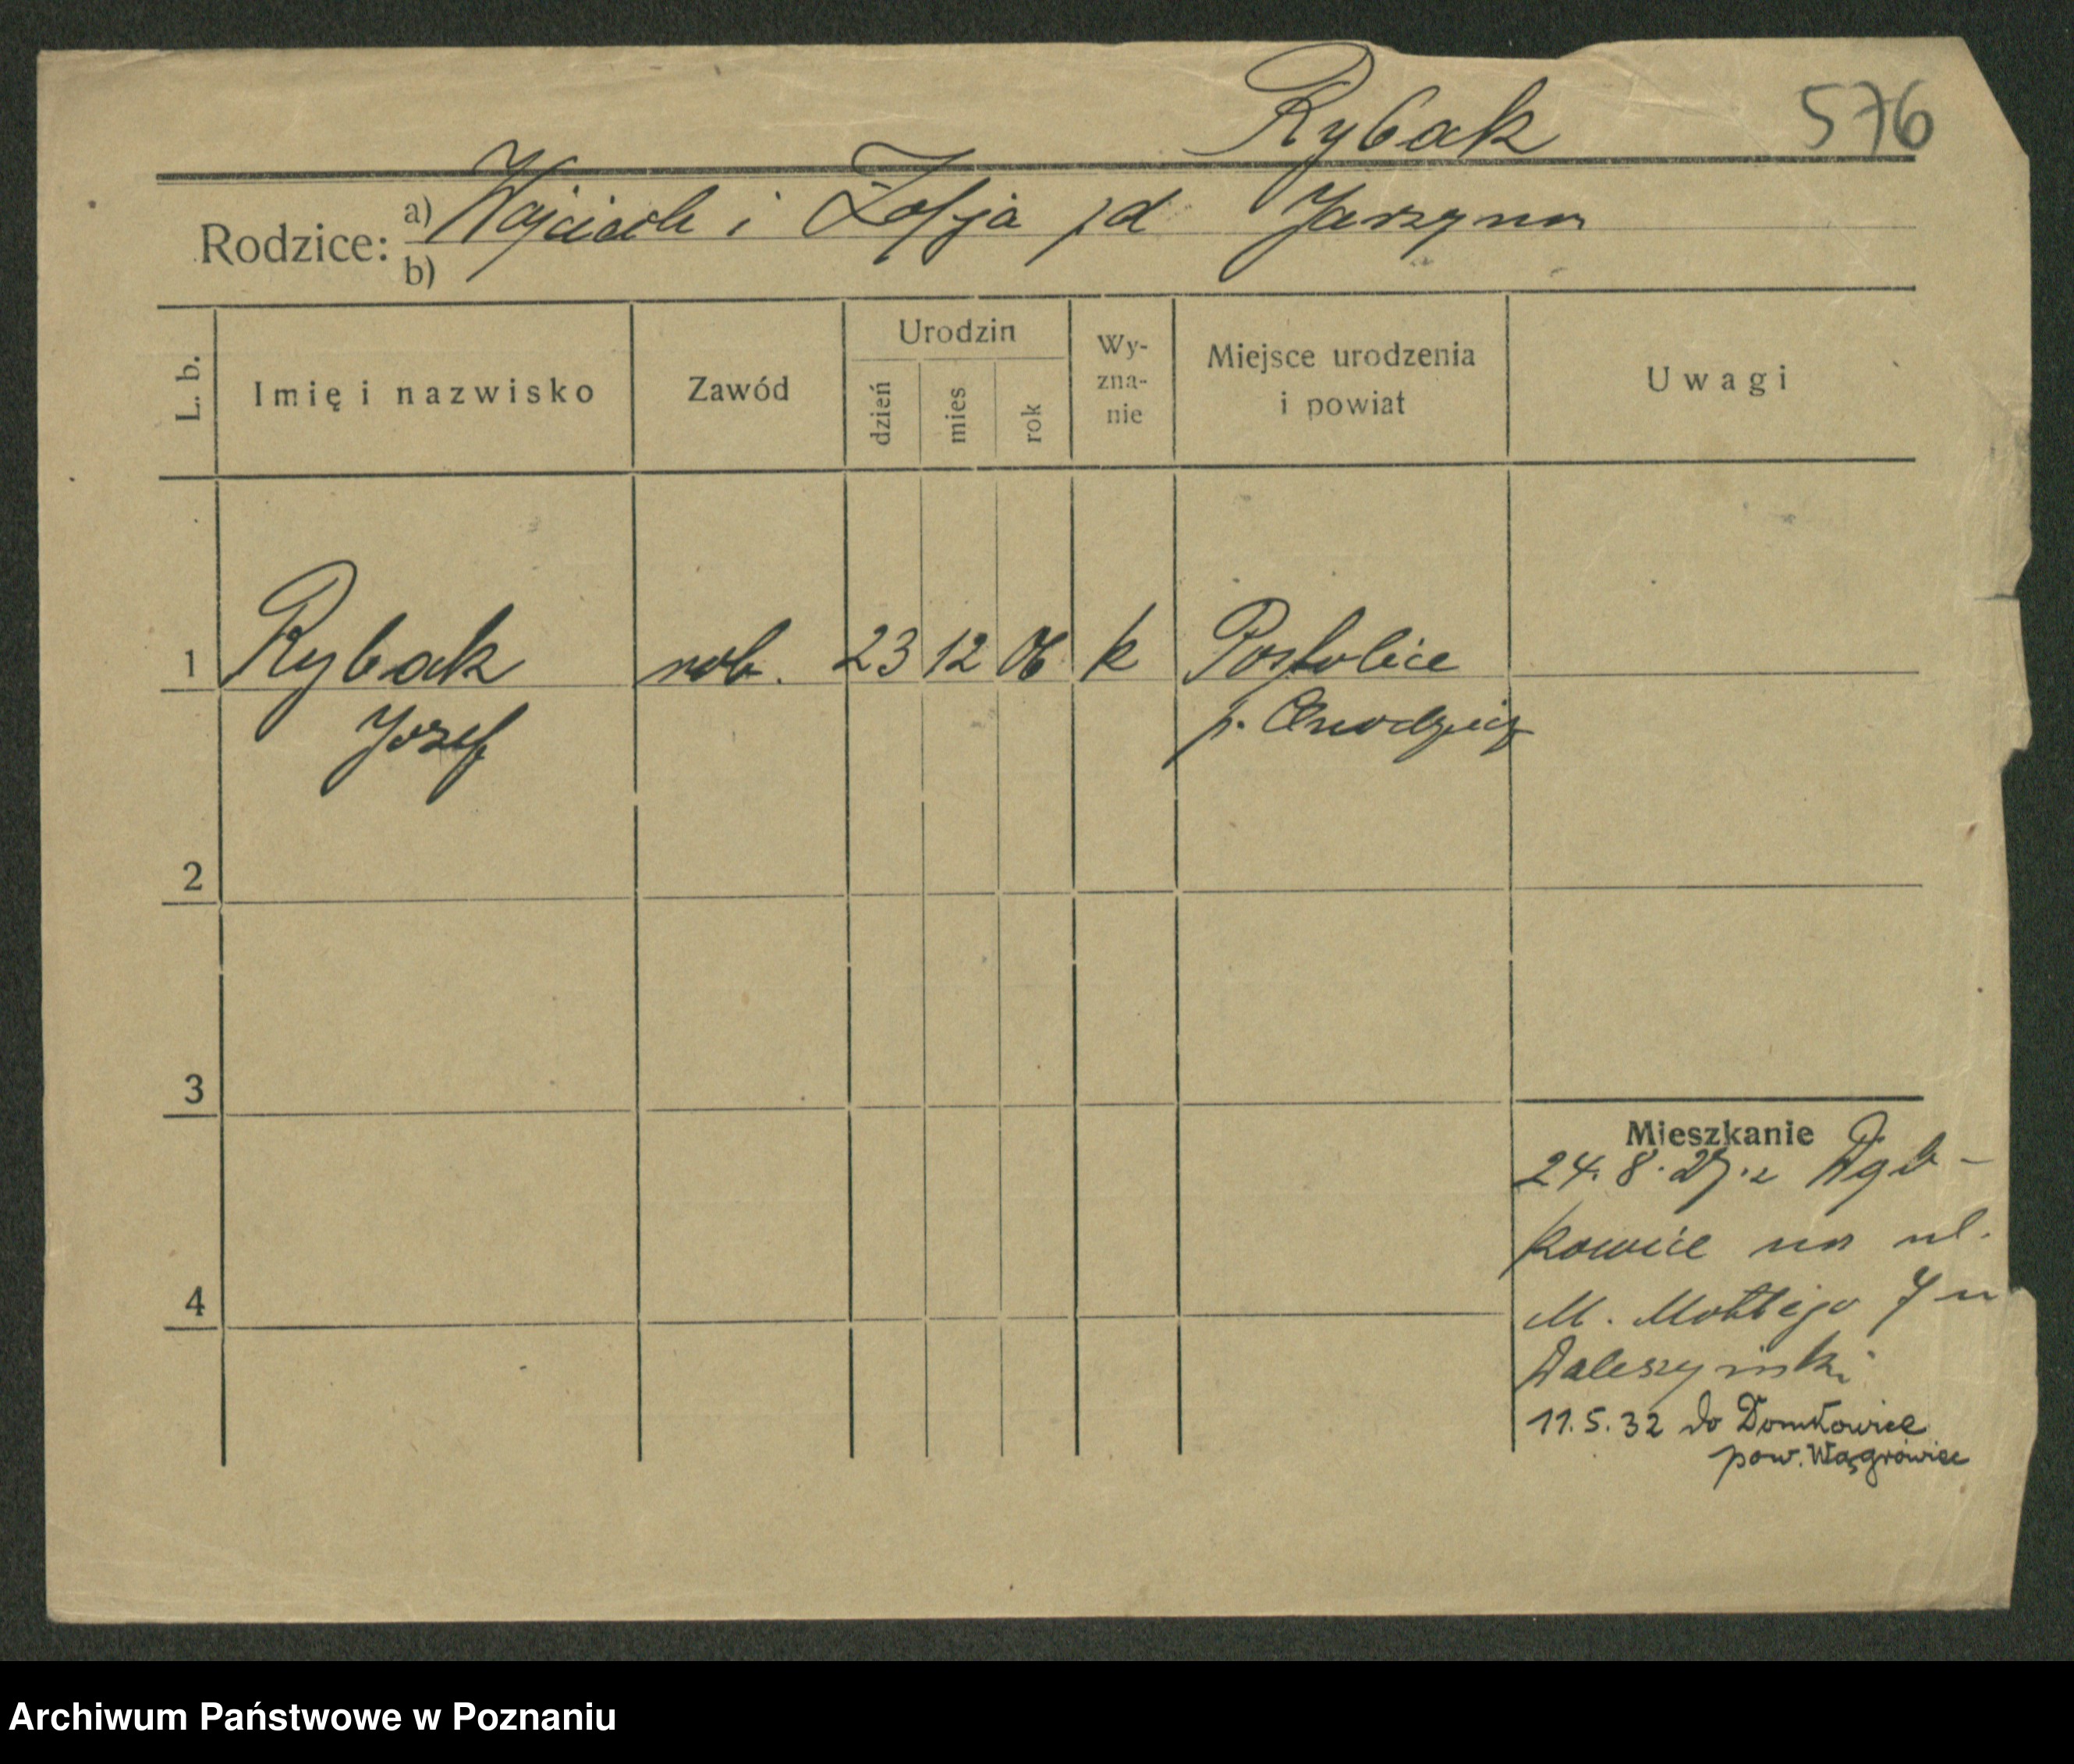 Rybak 576
Rodzice: a) Wojciech i Zofja zd Jarzyna
b)
L. b. Imię i nazwisko Zawód Urodzin dzień mies rok Wy-zna-nie Miejsce urodzenia i powiat Uwagi
1 Rybak rob. 23 12 06 k Postolice
Jozef p. Chodzież
2
3
Mieszkanie
24. 8. 27. z Dęb-
kowice na ul.
4
M. Mottego 7 u
Daleszyński
11.5.32 do Domkowice
pow. Wągrowiec
Archiwum Państwowe w Poznaniu